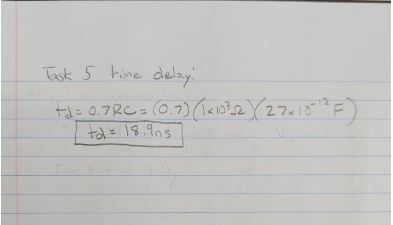 Task 5 time delay:
td = 0.7RC = (0.7)(1x10³Ω)(27x10⁻¹² F)
td = 18.9ns